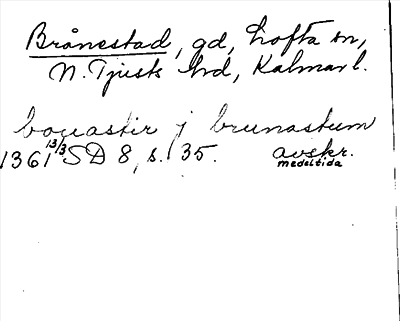 Brånestad, gd, Lofta sn,
N. Tjusts hd, Kalmar l.
bouastir j brunastum
1361 13/3 SD 8, s. 135. avskr.
medeltida